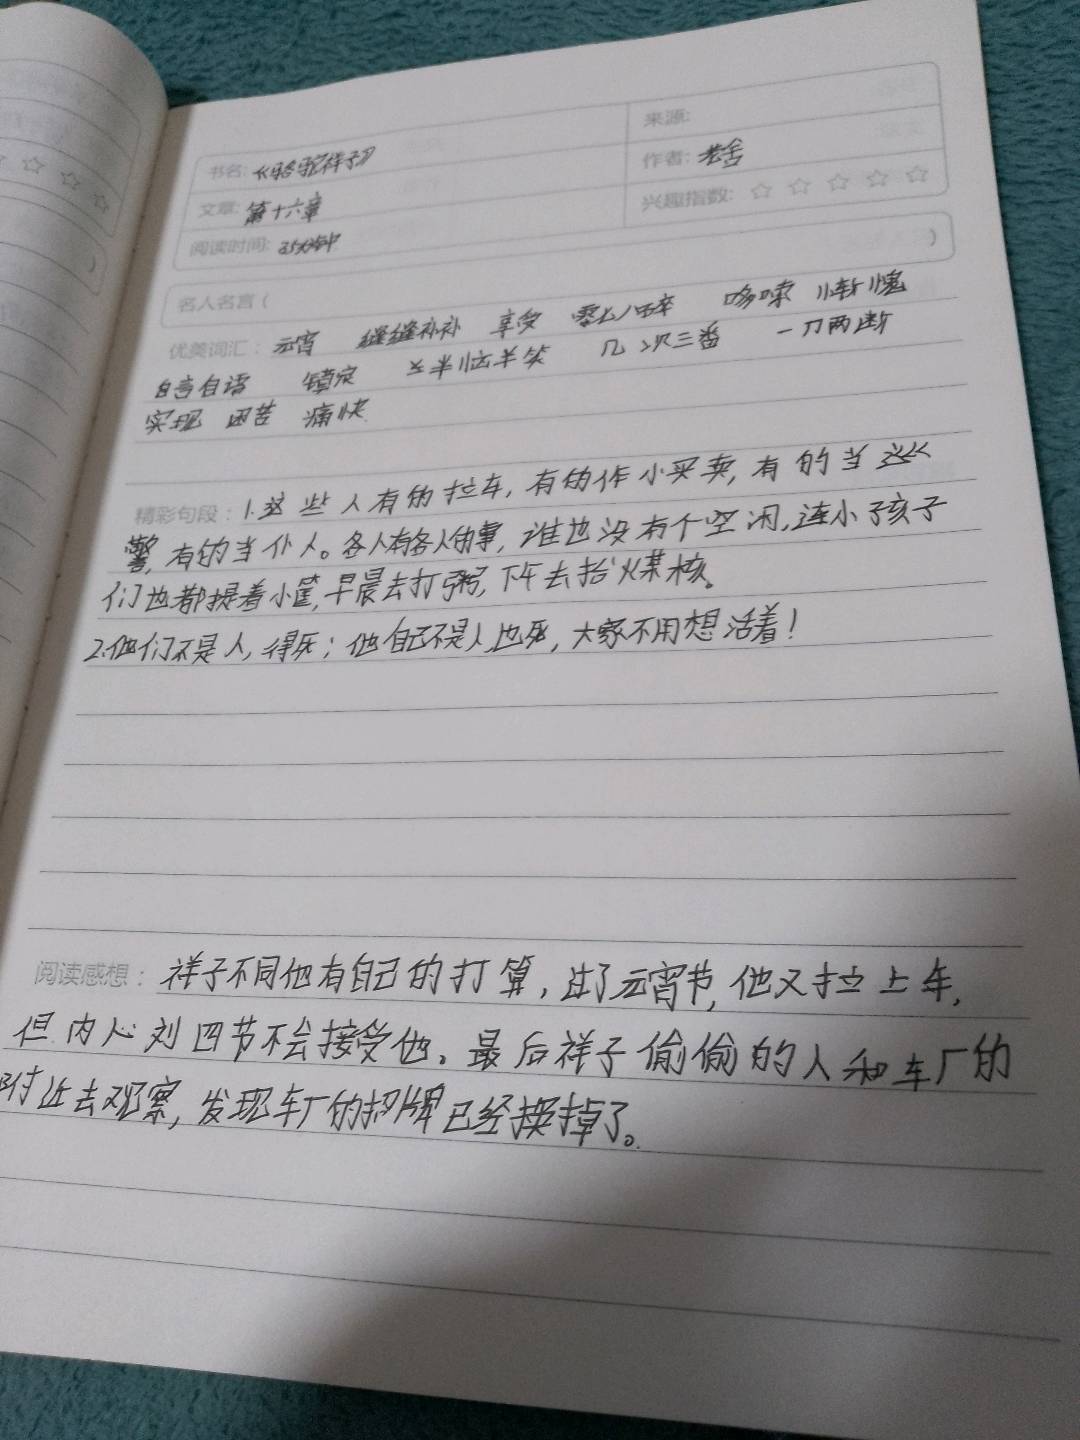 书名:《骆驼祥子》
来源:
作者:老舍
文章:第十六章
兴趣指数:☆☆☆☆☆
阅读时间:35分钟
名人名言( )
优美词汇: 元宵 缝缝补补 享受 零七八碎 哆嗦 惭愧
自言自语 镇定 半恼半笑 几次三番 一刀两断
实现 困苦 痛快
精彩句段:1.这些人有的拉车,有的作小买卖,有的当巡
警,有的当仆人。各人有各人的事,谁也没有个空闲,连小孩子
们也都提着小筐,早晨去打粥,下午去拾煤核。
2.他们不是人,得死;他自己不是人,也死,大家不用想活着!
阅读感想:祥子不同他有自己的打算,过了元宵节,他又拉上车,
但内心刘四节不会接受他。最后祥子偷偷的人和车厂的
附近去观察,发现车厂的招牌已经换掉了。